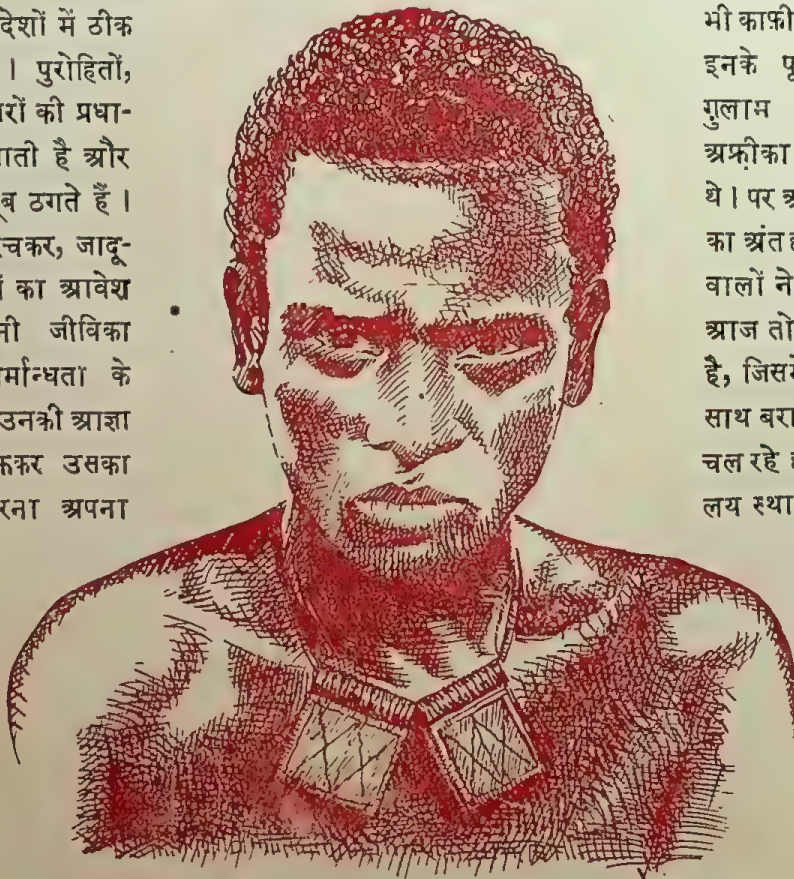 देशों में ठीक
। पुरोहितों,
रों की प्रधा-
ाती है और
ब ठगते हैं ।
चकर, जादू-
ं का आवेश
नी जीविका
र्मान्धता के
उनकी आज्ञा
ककर उसका
रना अपना
भी काफ़ी
इनके पू
गुलाम
अफ़्रीका
थे । पर अ
का अंत ह
वालों ने
आज तो
है, जिसमें
साथ बरा
चल रहे ह
लय स्था